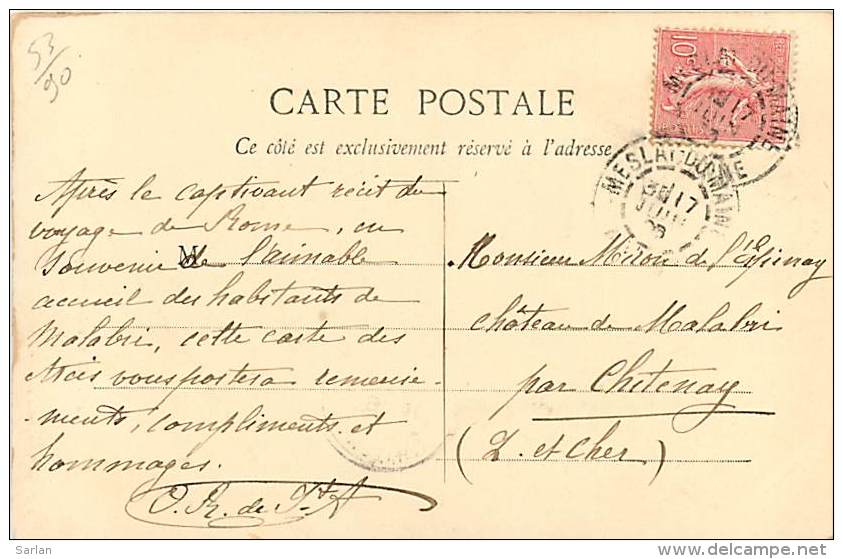 53/90
CARTE POSTALE
Ce côté est exclusivement réservé à l'adresse
10
MESLAY-DU-MAINE
17
JUIN
MESLAY-DU-MAINE
17
JUIN
Après le captivant récit du
voyage de Rome, en
souvenir de l'aimable
accueil des habitants de
Malabri, cette carte des
vous portera remercie-
-ments, compliments et
hommages.
O. R. de St A
M
Monsieur Miron de l'Espinay
château de Malabri
par Chitenay
(L. et Cher)
Sarlan
www.delcampe.net